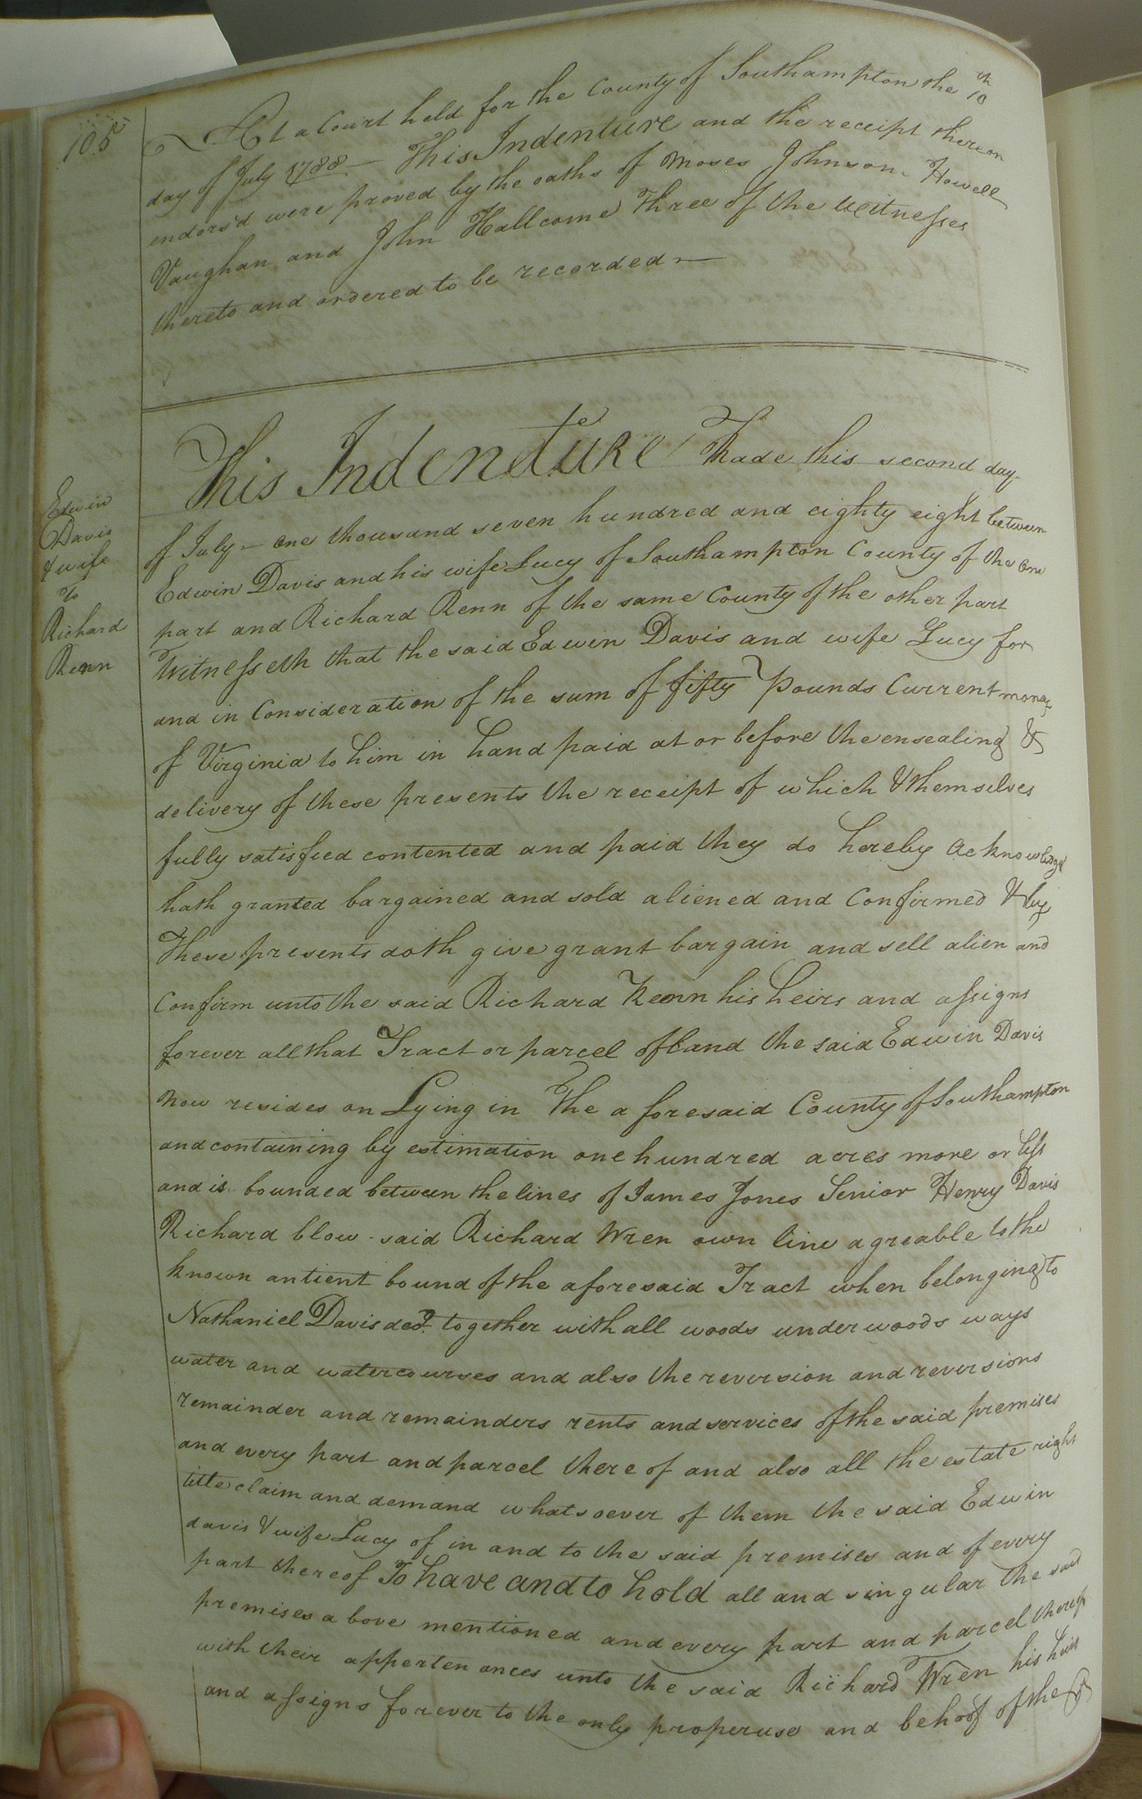 105
At a Court held for the County of Southampton the 10th
day of July 1788 — This Indenture and the receipt thereon
endors'd were proved by the oaths of Moses Johnson Howell
Vaughan and John Hallcome Three of the Witnesses
thereto and ordered to be recorded —
This Indenture Made this second day
of July — one thousand seven hundred and eighty eight between
Edwin Davis and his wife Lucy of Southampton County of the one
part and Richard Renn of the same County of the other part
Witnesseth that the said Edwin Davis and wife Lucy for
and in Consideration of the sum of fifty Pounds Current money
of Virginia to him in hand paid at or before the ensealing &
delivery of these presents the receipt of which & themselves
fully satisfied contented and paid they do hereby acknowledge
hath granted bargained and sold aliened and Confirmed & by
These presents doth give grant bargain and sell alien and
Confirm unto the said Richard Renn his heirs and assigns
forever all that Tract or parcel of land the said Edwin Davis
now resides on Lying in The aforesaid County of Southampton
and containing by estimation one hundred acres more or less
and is bounded between the lines of James Jones Senior Henry Davis
Richard blow said Richard Wren own line agreable to the
known antient bound of the aforesaid Tract when belonging to
Nathaniel Davis decd. together with all woods underwoods ways
water and watercourses and also the reversion and reversions
remainder and remainders rents and services of the said premises
and every part and parcel there of and also all the estate right
title claim and demand whatsoever of them the said Edwin
davis & wife Lucy of in and to the said premises and of every
part thereof To have and to hold all and singular the said
premises above mentioned and every part and parcel thereof
with their appertenances unto the said Richard Wren his heirs
and assigns forever to the only proper use and behoof of the
Edwin
Davis
& wife
to
Richard
Renn